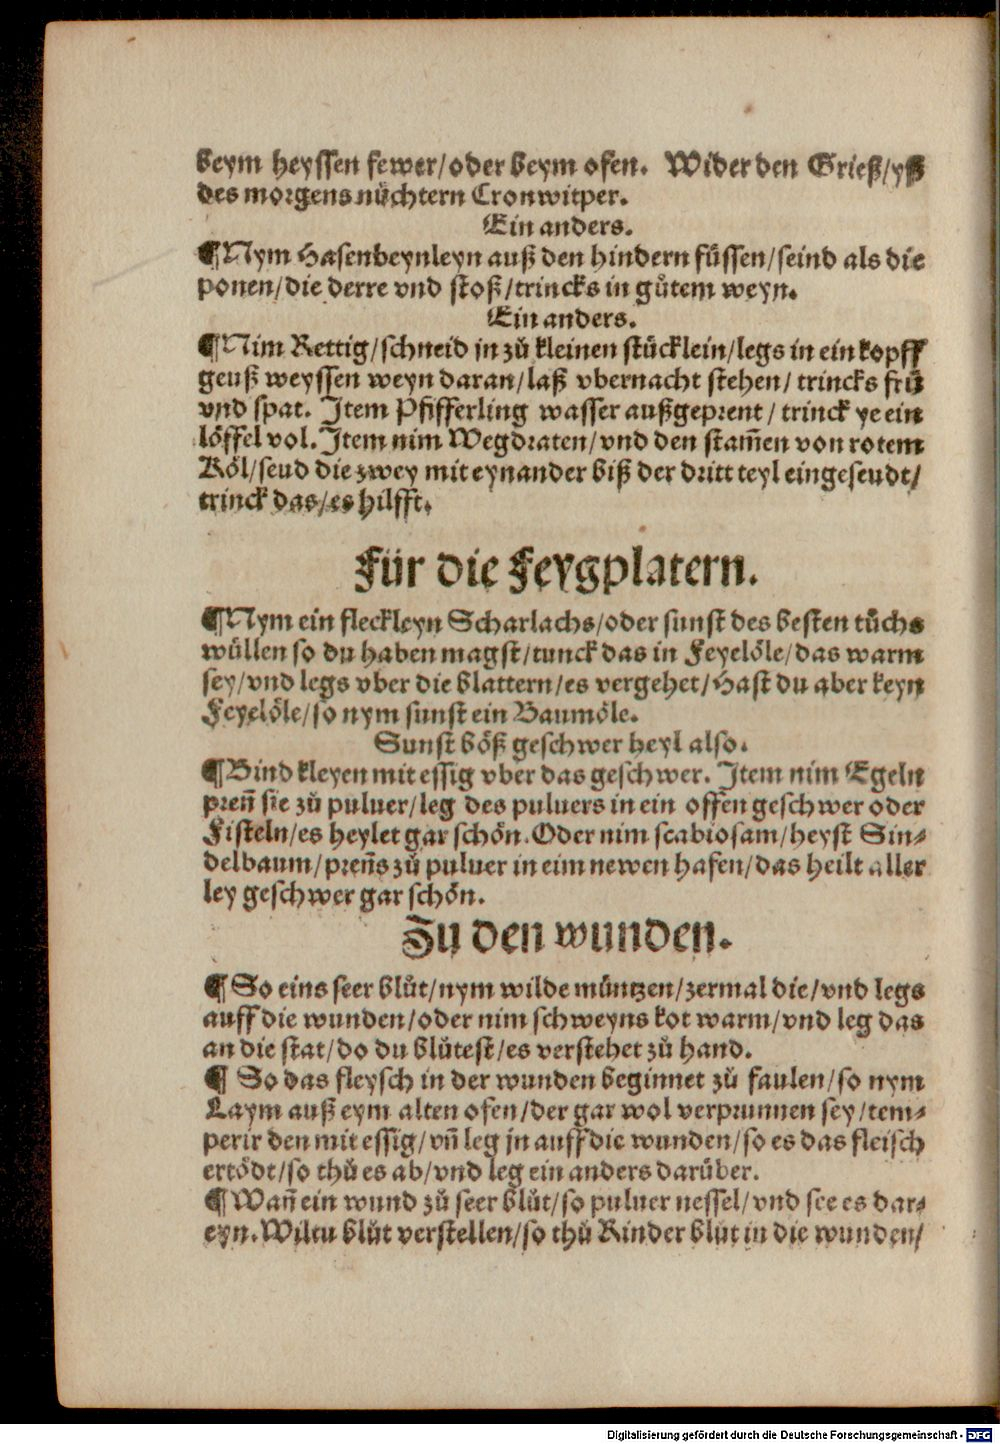 beym heyssen fewer/oder beym ofen. Wider den Grieß/yß
des morgens nüchtern Cronwitper.
Ein anders.
¶Nym Hasenbeynleyn auß den hindern füssen/seind als die
ponen/die derre vnd stoß/trincks in gůtem weyn.
Ein anders.
¶Nim Rettig/schneid jn zů kleinen stücklein/legs in ein kopff
geuß weyssen weyn daran/laß vbernacht stehen/ trincks frů
vnd spat. Item Pfifferling wasser außgeprent/ trinck ye ein
löffel vol. Item nim Wegdraten/vnd den stam̄en von rotem
Köl/seud die zwey mit eynander biß der dritt teyl eingeseudt/
trinck das/es hilfft.
Für die Feygplatern.
¶Nym ein fleckleyn Scharlachs/oder sunst des besten tůchs
wüllen so du haben magst/tunck das in Feyelöle/das warm
sey/vnd legs vber die blattern/es vergehet/Hast du aber keyn
Feyelöle/so nym sunst ein Baumöle.
Sunst böß geschwer heyl also.
¶Bind kleyen mit essig vber das geschwer. Item nim Egeln
pren̄ sie zů puluer/leg des puluers in ein offen geschwer oder
Fisteln/es heylet gar schön. Oder nim scabiosam/heyst Sin-
delbaum/pren̄s zů puluer in eim newen hafen/das heilt aller
ley geschwer gar schön.
Zu den wunden.
¶ So eins seer blůt/nym wilde müntzen/zermal die/vnd legs
auff die wunden/oder nim schweyns kot warm/vnd leg das
an die stat/do du blůtest/es verstehet zů hand.
¶ So das fleysch in der wunden beginnet zů faulen/so nym
Laym auß eym alten ofen/der gar wol verprunnen sey/tem-
perir den mit essig/vn̄ leg jn auff die wunden/so es das fleisch
ertödt/so thů es ab/vnd leg ein anders darüber.
¶ Wan̄ ein wund zů seer blůt/so puluer nessel/vnd see es dar-
eyn. Wiltu blůt verstellen/so thů Rinder blůt in die wunden/
Digitalisierung gefördert durch die Deutsche Forschungsgemeinschaft - DFG